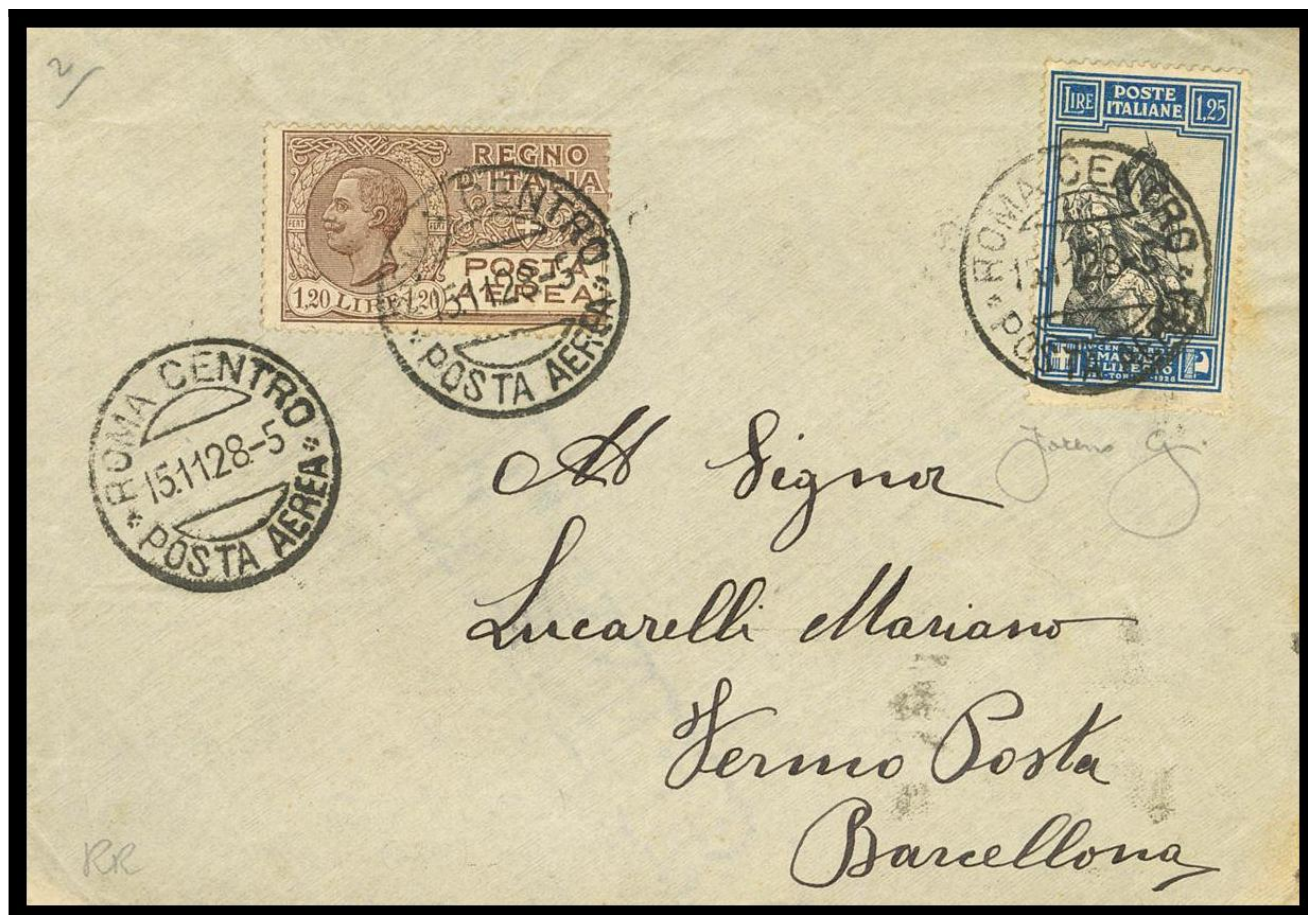 REGNO
D'ITALIA
POSTA
AEREA
1,20 LIRE 1,20
ROMA CENTRO
15.11.28.-5
POSTA AEREA
LIRE
POSTE
ITALIANE
1,25
EMANUELE
FILIBERTO
ROMA CENTRO
POSTA
ROMA CENTRO
15.11.28.-5
POSTA AEREA
Al Signor
Lucarelli Mariano
Fermo Posta
Barcellona
RR